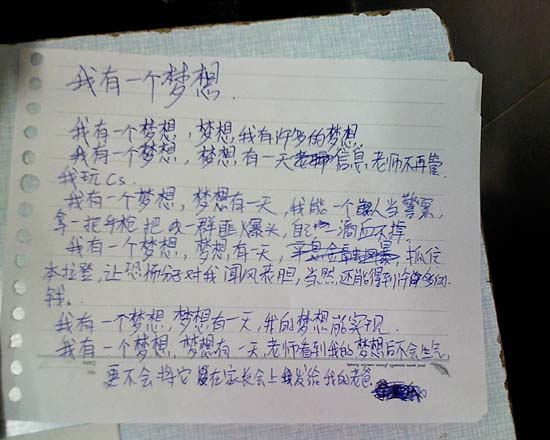 我有一个梦想.
我有一个梦想,梦想,我有许多的梦想.
我有一个梦想,梦想,有一天信息,老师不再管
我玩Cs.
我有一个梦想,梦想有一天,我能一个人当警察,
拿一把手枪把一群匪爆头,自己一滴血不掉.
我有一个梦想,梦想,有一天,抓住
本拉登,让恐怖分子对我闻风丧胆,当然,还能得到许多的
钱。
我有一个梦想,梦想有一天,我的梦想能实现.
我有一个梦想,梦想有一天,老师看到我的梦想后不会生气,
更不会将它在家长会上发给我的老爸.